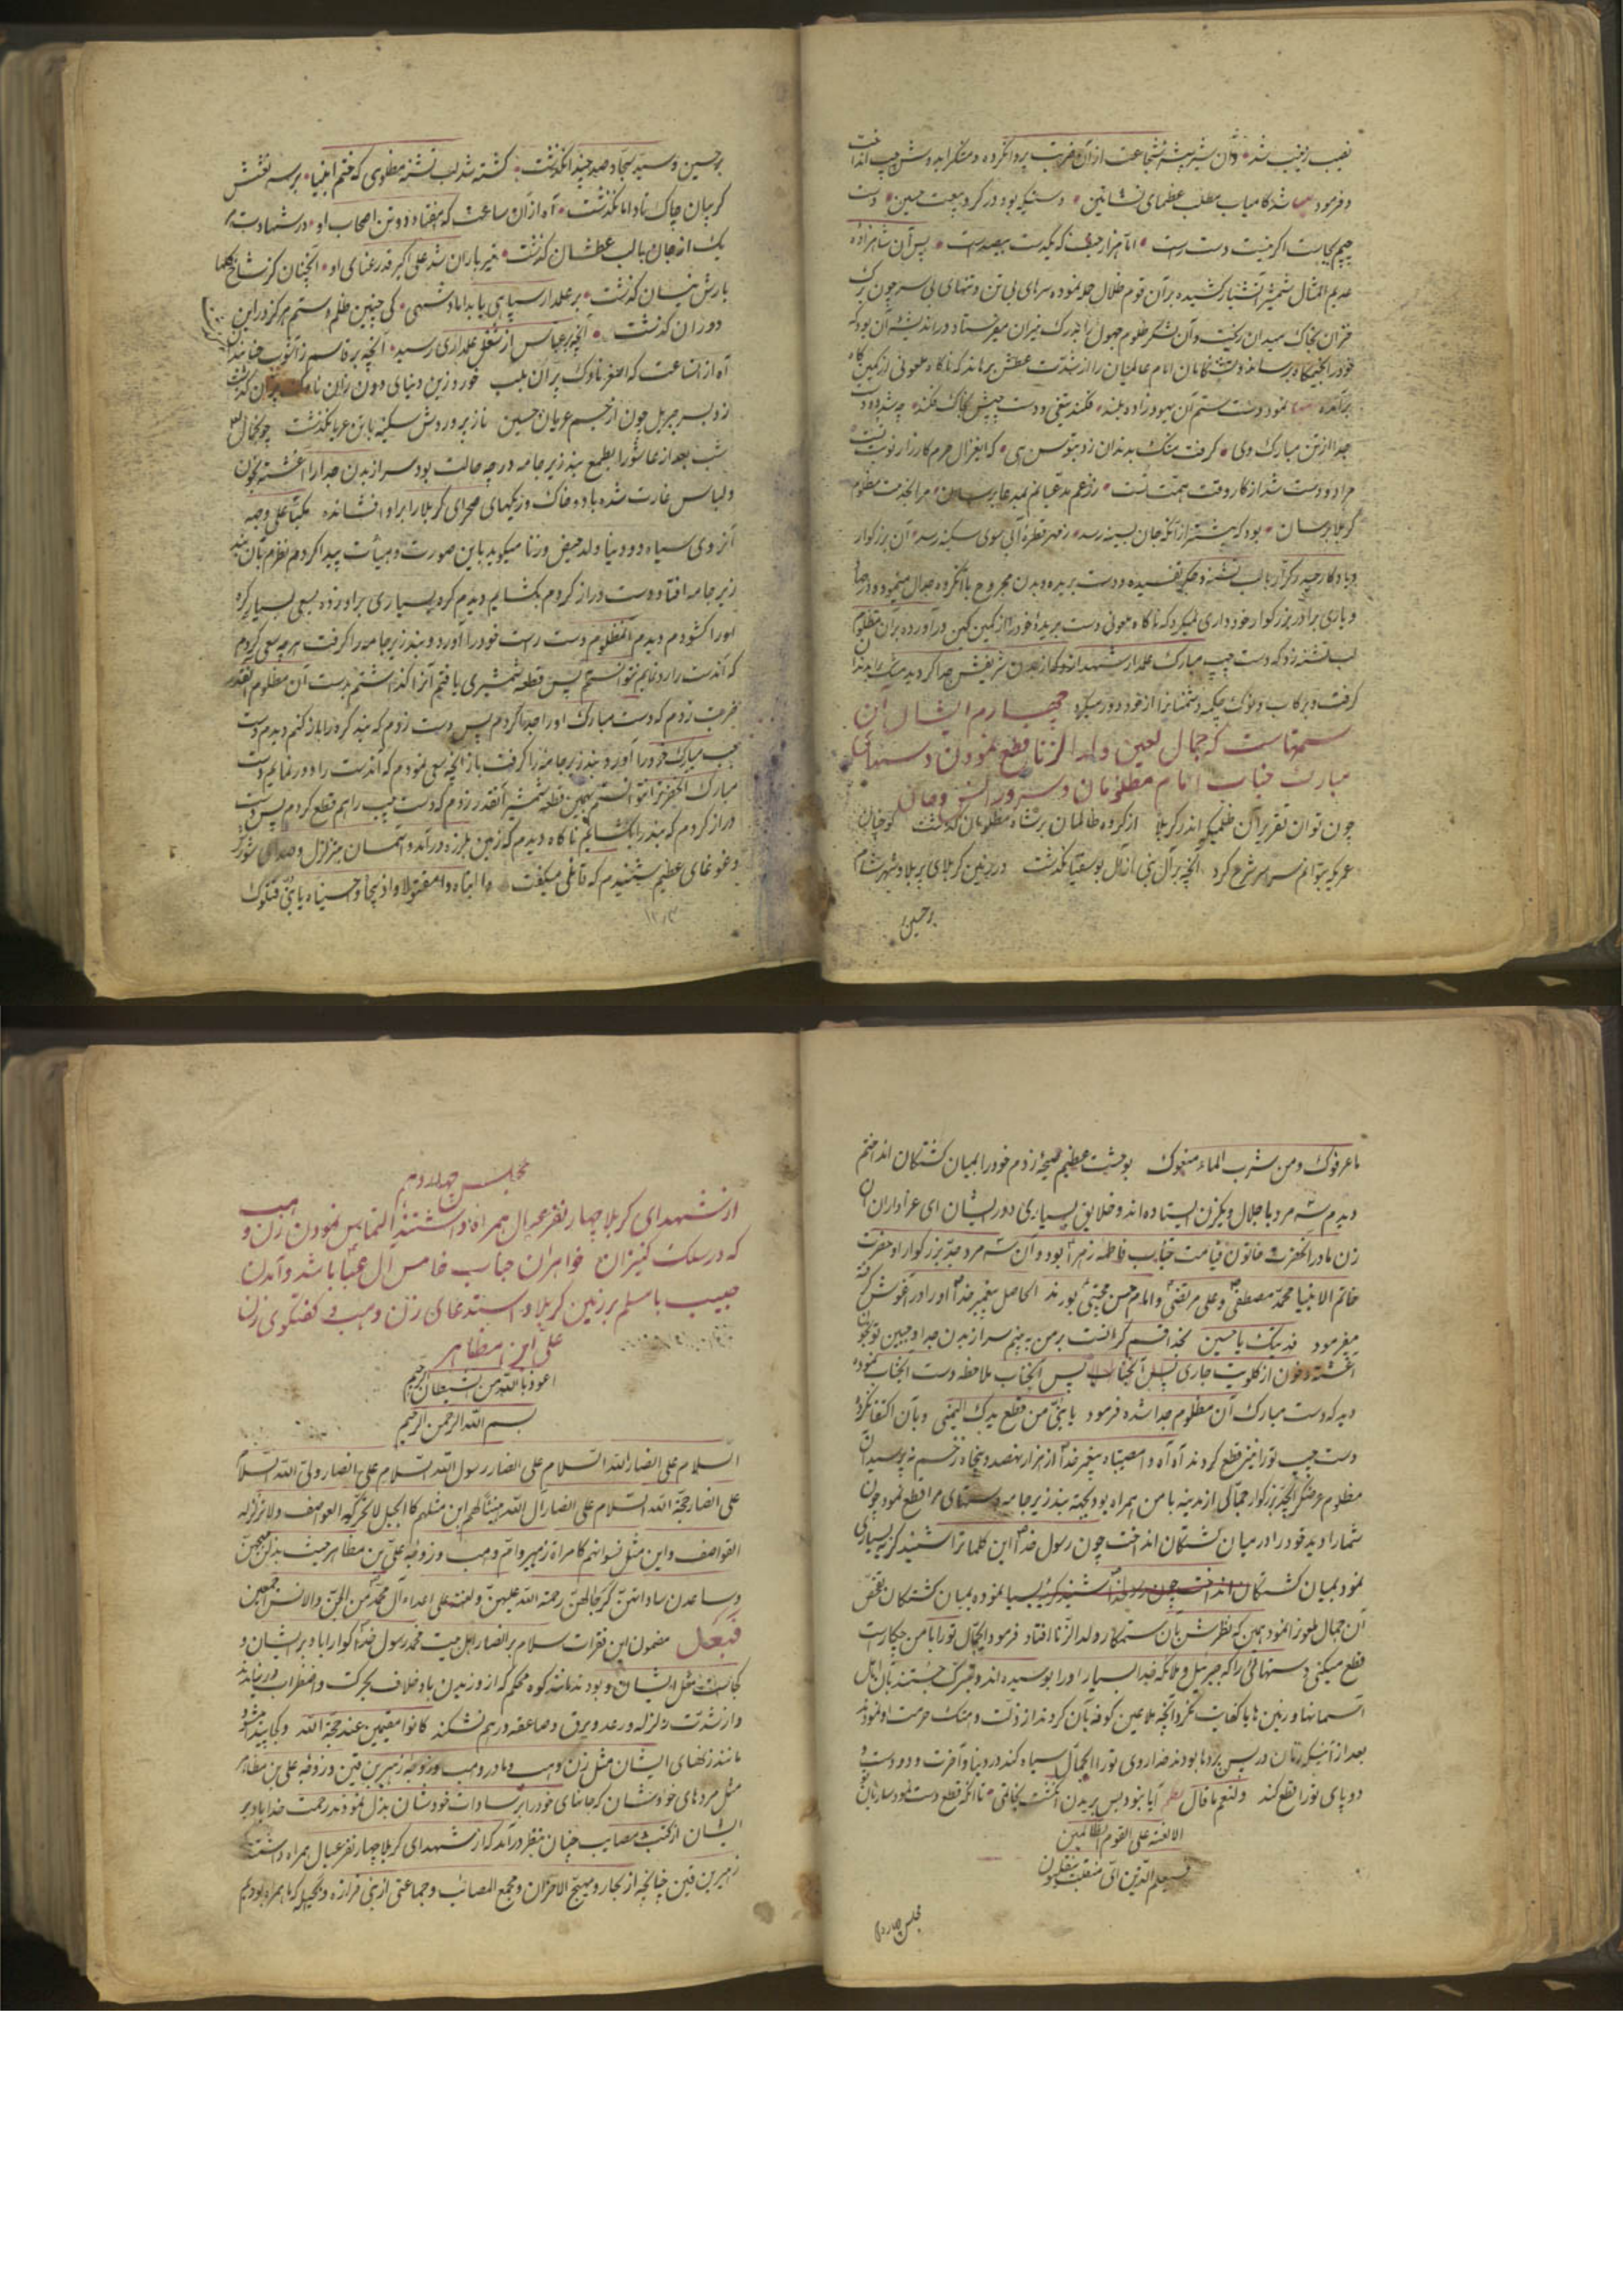 نصیب زینب شد و آن شیر بیشه شجاعت از آن ضربت پروا نکرده و مشکرا بدوش چپ انداخت
و فرمود شد کامیاب مطلب عظمای نشأتین دستیکه بود در گرو بیعت حسین دست
چپم بجاست اگر نیست دست راست اما هزار حیف که یکدست بیصداست پس آن شاهزاده
عدیم المثال شمشیر آتشبار کشیده بر آن قوم ضلال حمله نموده سرهای بی تن و تنهای بی سر چون برگ
خزان بخاک میدان ریخت و آن لشکر ظلوم جهول را بدرک نیران میفرستاد در اندیشه آن بود که
خود را بخیمگاه برساند و تشنکامان امام عالمیان را از شدت عطش برهاند که ناگاه ملعونی از کمین گاه
برآمده نمود دست ستم آن یهود زاده بلند فکند تیغی و دست چپش بخاک فکند چه شد دو دست
جدا از تن مبارک وی گرفت مشک بدندان زد بتوسن هی که ای غزال حرم کارزار نوبت تست
مرا دو دست شد از کار وقت همت تست
کربلا برسان بود که پیشتر از آنکه جان بسینه رسد ز مهر قطره آبی سوی سکینه رسد آن بزرگوار
و یادگار حیدر کرار با لب تشنه و جگر تفسیده و دست بریده و بدن مجروح با آنگروه جدال مینمود و در
و یاری برادر بزرگوار خودداری نمیکرد که ناگاه ملعونی دست بریدهٔ خود را از کمین کین درآورده بر آن مظلوم
لب تشنه زد که دست چپ مبارک علمدار شهدا از بدن شریفش جدا گردید مشک را بدندان
گرفت و بر رکاب و دشمنانرا از خود دور میکرد چهارم ایشال آن
ستمهاست که جمال لعین ولد الزنا قطع نمودن دستهای
مبارک جناب امام مظلومان و سرور انس و جان
چون توان تقریر آن ظلمیکه اندر کربلا از گروه ظالمان بر شاه مظلومان گذشت
عمریکه بتوانم سراسر شرح کرد آنچه بر آل نبی از آل بوسفیان گذشت در زمین کربلای پر بلا و شهر شام
بر حسین
بر حسین و سید سجاد صد چندان گذشت کشته شد لب تشنه مظلومی که ختم انبیا بر سر نعشش
گریبان چاک تا دامان گذشت آه از آن ساعت که هفتاد و دو تن اصحاب او در شهادت
یک از جان با لب عطشان گذشت تیر باران شد علی اکبر قد رعنای او آنچنان کز شاخ گلها
بارش نیسان گذشت بر علمدار سپاهی یا بداماد شهی کی چنین ظلم و ستم هرگز در این
دوران گذشت آنچه بر عباس از شغل علمداری رسید آنچه بر قاسم ز آشوب
آه از آنساعت که اصغر ناوک پران بلب خورد زین دنیای دون
زد بسر جبریل چون از جسم عریان حسین ناز پرور دوش سکینه با تن عریان گذشت
شب بعد از عاشورا بطمع بند زیر جامه در چه حالت بود سر از بدن جدا را آغشته بخون
و لباس غارت شده باد و خاک و ریگهای صحرای کربلا را بر او افشانده مکبا علی وجهه
آنروی سیاه دو دنیا ولد حیض و زنا میگوید باین صورت و هیأت پیدا کردم نظرم بآن بند
زیر جامه افتاد دست دراز کردم بگشایم دیدم گره بسیاری بر او زده بسعی بسیار گره
اورا گشودم دیدم آنمظلوم دست راست خود را آورد و بند زیر جامه را گرفت هر چه سعی کردم
که آندست را رد نمایم نتوانستم پس قطعه شمشیری یافتم آنرا گذاشتم بدست آن مظلوم آنقدر
ضربت زدم که دست مبارک اورا جدا کردم پس دست زدم که بند گره را باز کنم دیدم دست
چپ مبارک خود را آورد و بند زیر جامه را گرفت باز آنچه سعی نمودم که آندست را دور نمایم دست
مبارک آنحضرترا نتوانستم بهمین قطعه شمشیر آنقدر زدم که دست چپ را هم قطع کردم پس دست
دراز کردم که بند را بگشایم ناگاه دیدم که زمین بلرزه درآمد و آسمان متزلزل و صدای شور
و غوغای عظیم شنیدم که قائلی میگفت وا ابناه وا مقتولاه وا ذبیحاه وا حسیناه یا بنی قتلوک
ما عرفوک و من شرب الماء منعوک بوحشت عظیم صیحه زدم خود را بمیان کشتگان انداختم
دیدم سه مرد با جلال و یکزن ایستاده اند و خلایق بسیاری دور ایشان ای عزاداران آن
زن مادر آنحضرت خاتون قیامت جناب فاطمه زهرا بود و آن سه مرد جد بزرگوار او حضرت
خاتم الانبیا محمد مصطفی و علی مرتضی و امام حسن مجتبی بودند الحاصل پیغمبر خدا اورا در آغوش گرفته
میفرمود فدیتک یا حسین بخدا قسم گرانست بر من به بینم سر از بدن جدا و جبین تو بخون
آغشته و خون از گلویت جاری پس آنجناب ملاحظه دست آنجناب نموده
دید که دست مبارک آن مظلوم جدا شده فرمود یا بنی من قطع یدک الیمنی و بآن اکتفا نکرده
دست چپ ترا نیز قطع کردند آه آه وا مصیبتاه پیغمبر خدا از هزار و نهصد و پنجاه زخم نپرسید آن
مظلوم عرض کرد ای جد بزرگوار جمالی از مدینه با من همراه بود بجهة بند زیر جامه دستهای مرا قطع نمود چون
شما را دید خود را در میان کشتگان انداخت چون رسول خدا این کلماترا شنید گریه بسیاری
نمود بمیان کشتگان بمیان کشتگان تفحص
آن جمال ملعونرا نمود همین که نظرش بآن ستمکار ولد الزنا افتاد فرمود ای جمال ترا با من چکار است
قطع میکنی دستهائی را که جبرئیل و ملائکه خدا بسیار او را بوسیده اند و تبرک جستند بآن اهل
آسمانها و زمین ها آیا کفایت نکرد آنچه ملاعین کوفه بآن کردند از ذلت و هتک حرمت او نمودند
بعد از آنیکه زنان در پس پردها بودند خدا روی ترا ای جمال سیاه کند در دنیا و آخرت و دو دست و
دو پای ترا قطع کند و لنعم ما قال نظم آیا نبود بس بریدن انگشت
الا لعنة علی القوم الظالمین
و سیعلم الذین ای منقلب ینقلبون
مجلس چهاردهم
مجلس چهاردهم
از شهدای کربلا چهار نفر عیال همراه داشتند التماس نمودن زن وهب
که در سلک کنیزان خواهران جناب خامس آل عبا باشد و آمدن
حبیب با مسلم بر زمین کربلا و استدعای زن وهب و گفتگوی زن
علی ابن مظاهر
اعوذ بالله من الشیطان الرجیم
بسم الله الرحمن الرحیم
السلام علی انصار الله السلام علی انصار رسول الله السلام علی انصار ولی الله السلام
علی انصار حجة الله السلام علی انصار آل الله هنیئا لهم این مثلهم کالجبل لا تحرکه العواصف ولا تزلزله
القواصف و این مثل نسوانهم کامراة زهیر و ام وهب و زوجة علی بن مظاهر حیث بذلن مهجهن
و ساعدن ساداتهن کرجالهن رحمة الله علیهن و لعنة علی اعداء آل محمد من الجن و الانس اجمعین
فبعد مضمون این فقرات سلام بر انصار اهل بیت محمد رسول خدا گوارا باد بر ایشان و
کجاست مثل ایشان و بودند مانند کوه محکم که از وزیدن باد خلاف بحرکت و اضطراب در نیایند
و از شدت زلزله و رعد و برق و صاعقه درهم نشکند کانوا مقیمین عند حجة الله و کجا پیدا میشود
مانند زنهای ایشان مثل زن وهب و مادر وهب و زوجه زهیر بن قین و زوجه علی بن مظاهر
مثل مردهای خودشان که جانهای خود را بر سادات خودشان بذل نمودند رحمت خدا باد بر
ایشان از کتب مصایب چنان بنظر درآمد که از شهدای کربلا چهار نفر عیال همراه داشتند
زهیر بن قین چنانچه از بحار و مهیج الاحزان و مجمع المصائب و جماعتی از بنی فزازه و بجیله که ما همراه بودیم